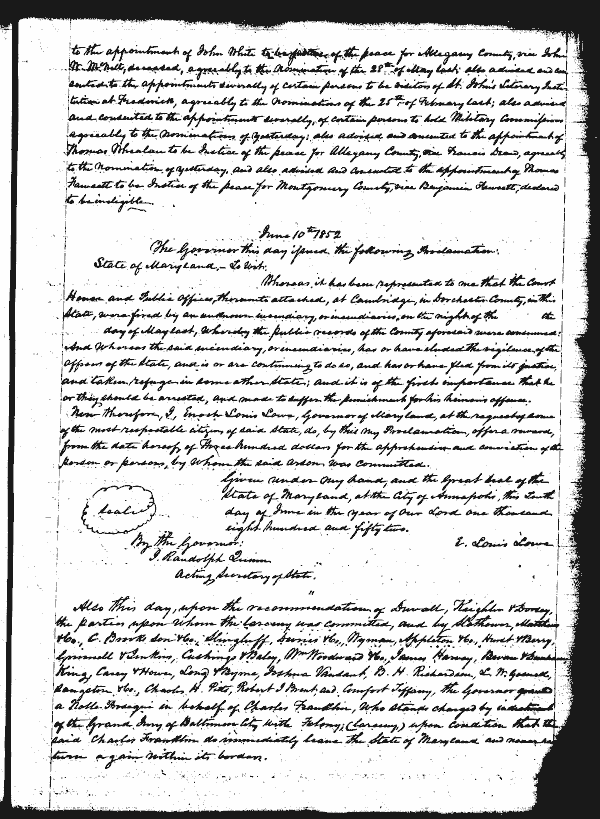 to the appointment of John White to be Justice of the peace for Allegany County, vice John
N. McNett, deceased, agreeably to the Nomination of the 28th of May last; also advised and con
sented to the appointment severally, of certain persons to be visitors of St. John's Literary Insti
tution at Frederick, agreeably to the Nominations of the 25th of February last; also advised
and consented to the appointments severally, of certain persons to hold Military Commissions
agreeably to the Nominations of yesterday; also advised, and consented to the appointment of
Thomas Whealan to be Justice of the peace for Allegany County, vice Francis agreeably
to the Nomination of yesterday, and also advised and consented to the appointment of Thomas
Fawcett to be Justice of the peace for Montgomery County, vice Benjamin Fawcett, declared
to be ineligible.
June 10th 1852
The Governor this day issued the following Proclamation:
State of Maryland, To Wit:
Whereas, it has been represented to me that the Court
House and Public Offices, thereunto attached, at Cambridge, in Dorchester County, in this
State, were fired by an unknown incendiary, or incendiaries, on the night of the the
day of May last, whereby the public records of the County aforesaid were consumed:
And Whereas the said incendiary, or incendiaries, has or have eluded the vigilence of the
officers of the State, and is or are continuing to do so, and has or have fled from its justice,
and taken refuge in some other State; and it is of the first importance that he
or they should be arrested, and made to suffer the punishment for his heinous offence.
Now Therefore, I, Enoch Louis Lowe, Governor of Maryland, at the request of some
of the most respectable citizens of said State, do, by this my Proclamation, offer a reward,
from the date hereof, of Three hundred dollars for the apprehension and conviction of the
person or persons, by whom the said Arson, was committed.
Given under my hand, and the Great Seal of the
State of Maryland, at the City of Annapolis, this Tenth
day of June in the year of Our Lord one thousand
eight hundred and fifty two.
Seal
By the Governor: E. Louis Lowe
J. Randolph Quinn
Acting Secretary of State.
Also this day, upon the recommendation of Duvall, Keighler & Dorsey,
the parties upon whom the larceny was committed, and by Slothower, Matthews
& Co., C. Brooks son & Co, Slingluff, & Co., Wyman, Appleton & Co., Hurst & Berry,
Grinnell & Jenkins, Cushings & Baley, Wm Woodward & Co., James Harvey,
King, Carey & Howe, Long & Byrne, Joshua Vansant, B. H. Richardson, L. W. Gosnell,
Sangston & Co., Charles H. Pitts, Robert J. Brent and Comfort Tiffany, the Governor granted
a Nolle Prosequi in behalf of Charles Franklin, who stands charged by indictment
of the Grand Jury of Baltimore City with Felony, (larceny,) upon condition that the
said Charles Franklin do immediately leave the State of Maryland and never re
turn again within its borders.